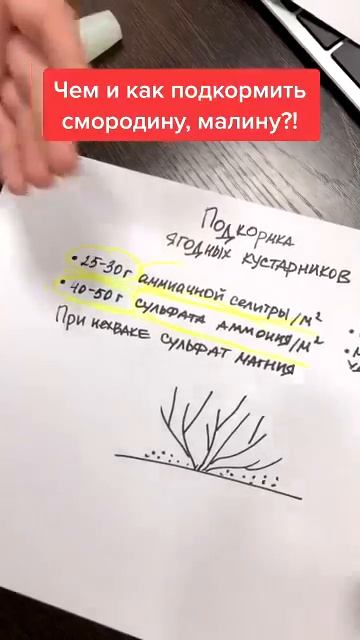 Чем и как подкормить
смородину, малину?!
Подкормка
ягодных кустарников
• 25-30г аммиачной селитры/м²
• 40-50г сульфата аммония/м²
При нехваке сульфат магния